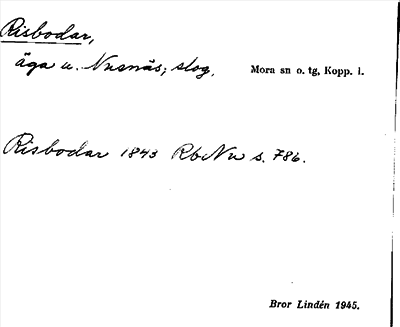 Risbodar,
äga u. Nusnäs; slog.
Mora sn o. tg, Kopp. l.
Risbodar 1843 RbNu s. 786.
Bror Lindén 1945.